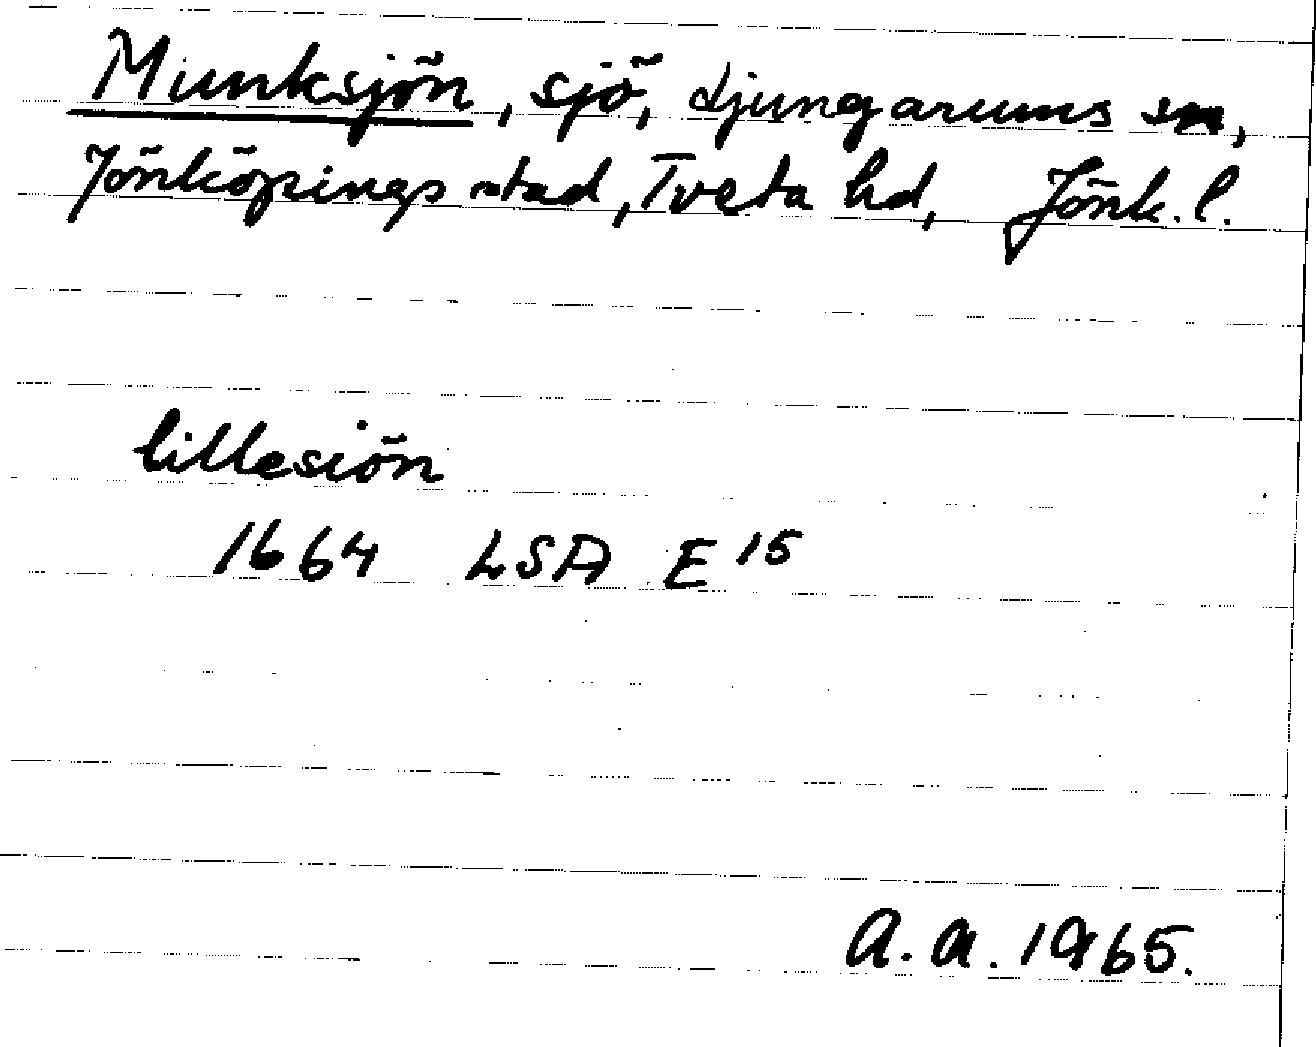 Munksjön, sjö, Ljungarums sn,
Jönköpings stad, Tveta hd, Jönk. l.
lillesiön
1664 LSA E 15
A. A. 1965.